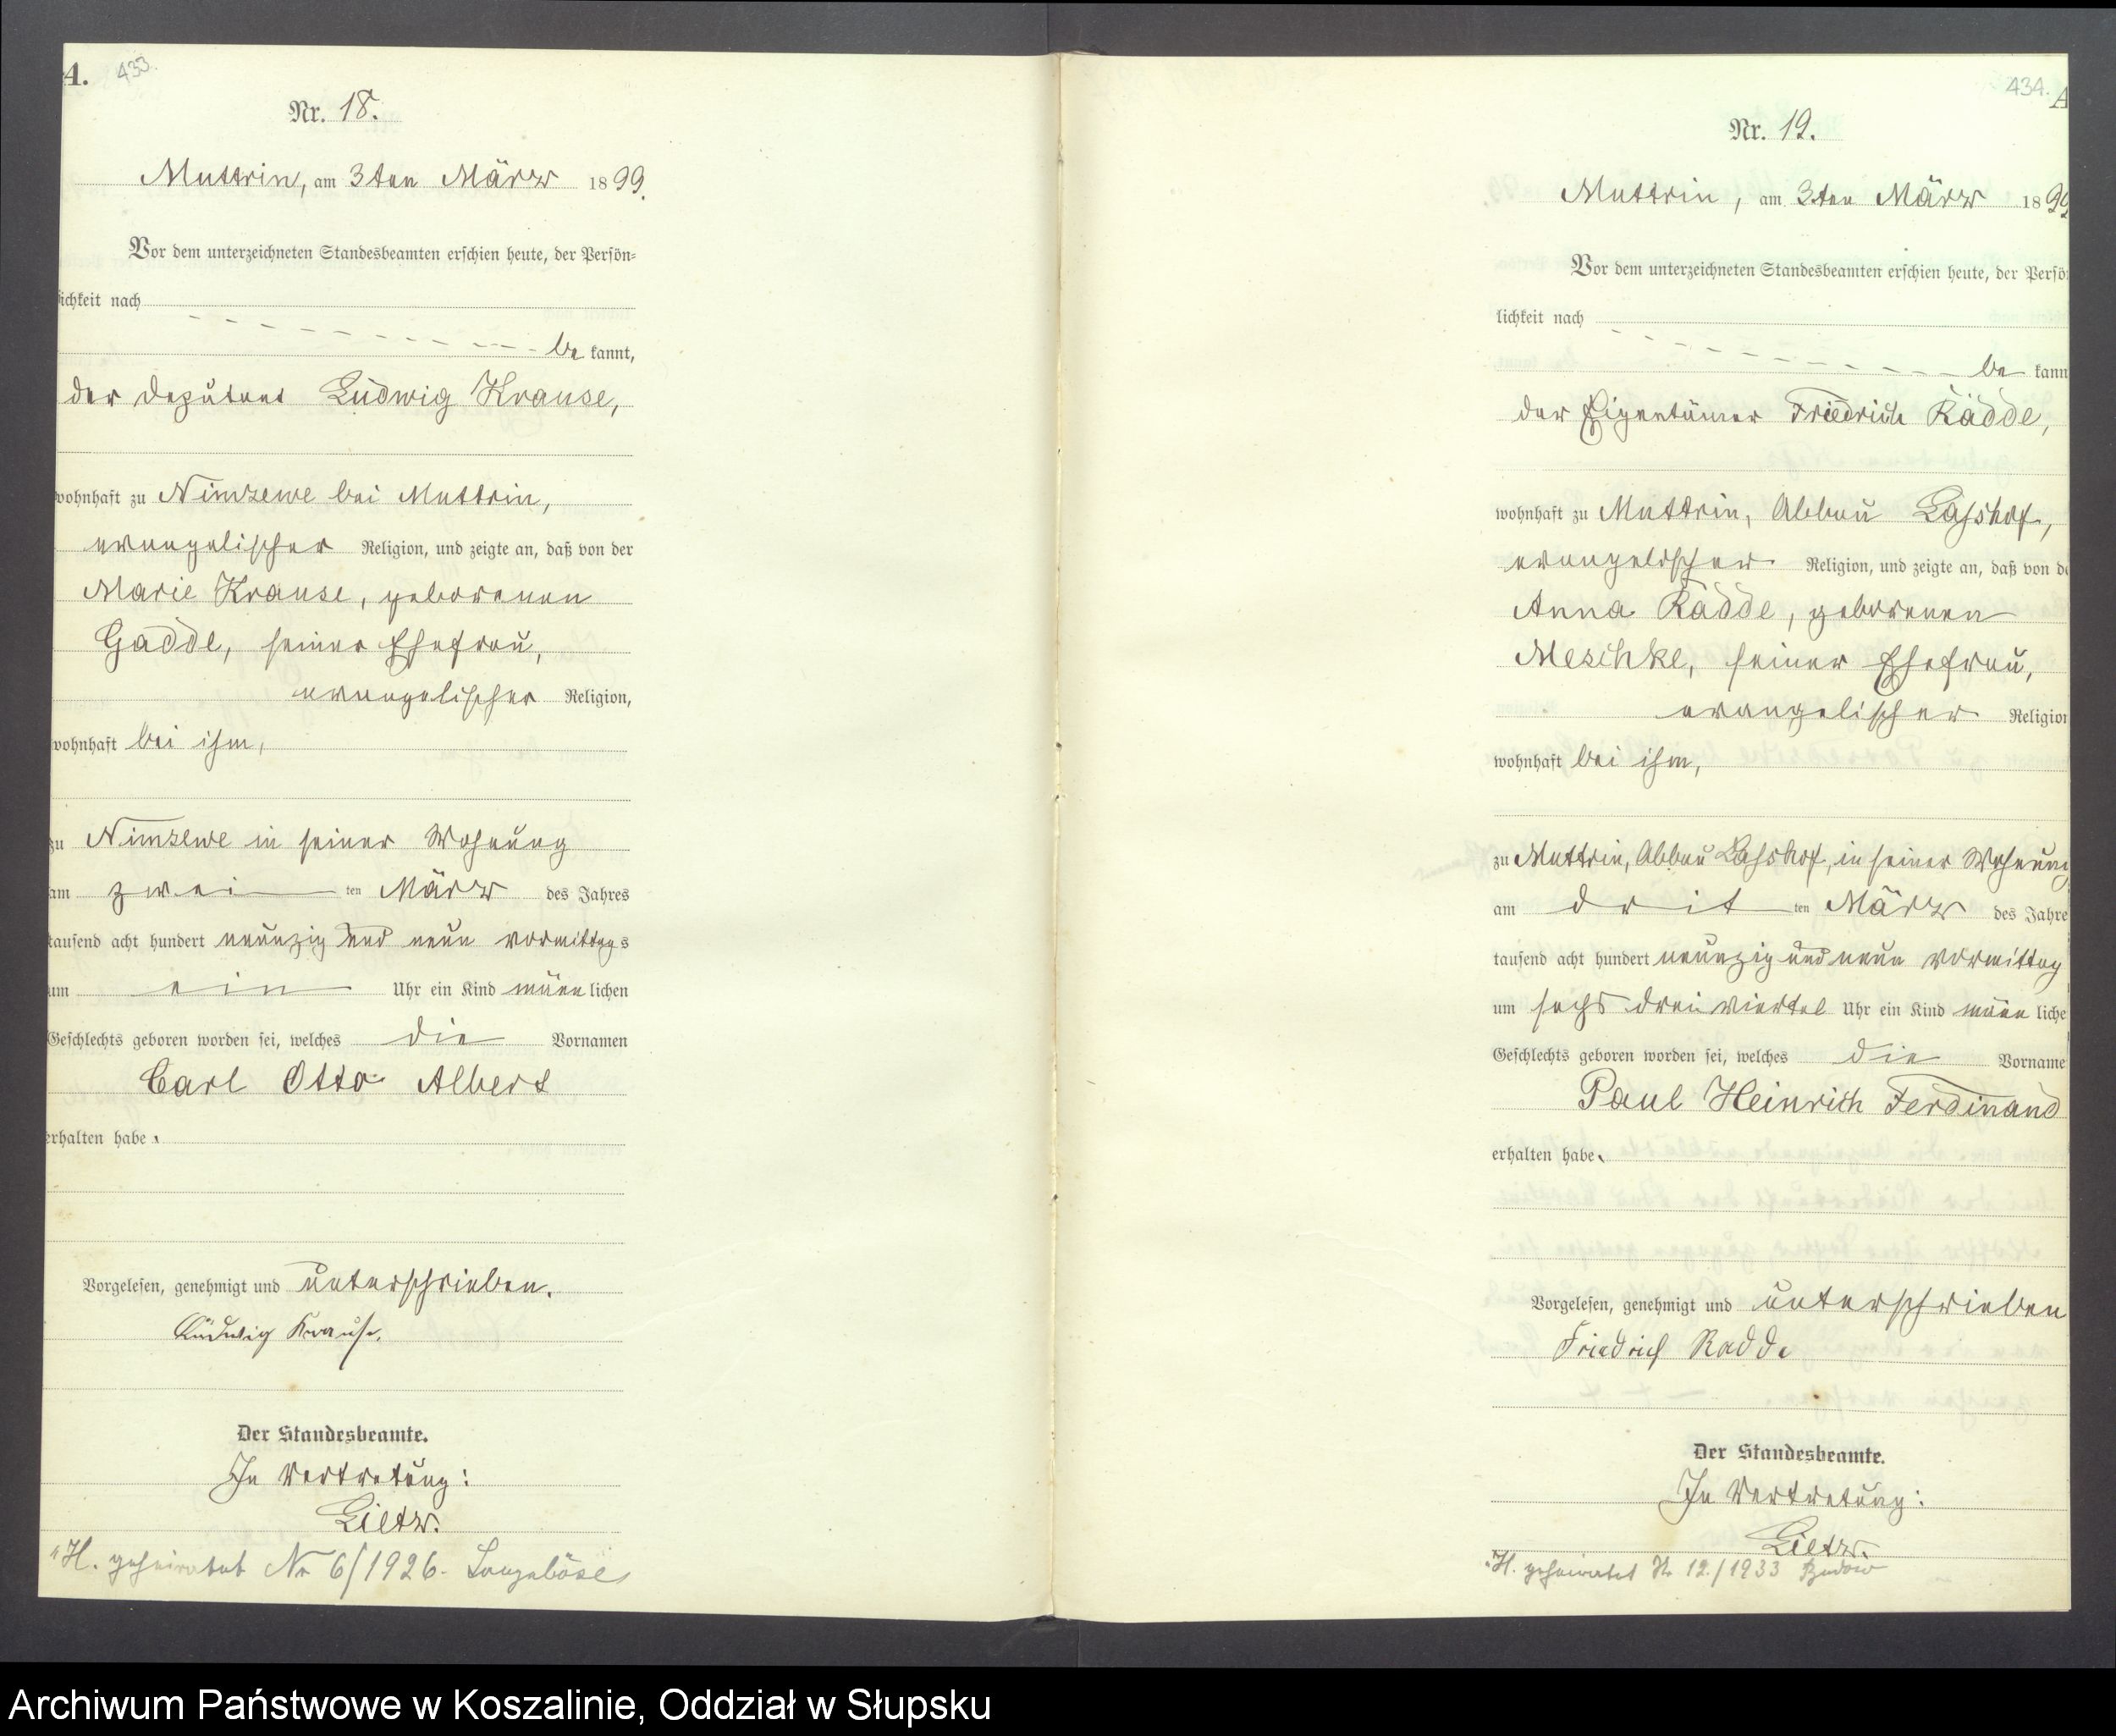 A. 433.
Nr. 18.
Muttrin, am 3ten März 1899.
Vor dem unterzeichneten Standesbeamten erschien heute, der Persön-
lichkeit nach
be kannt,
der Deputant Ludwig Krause,
wohnhaft zu Nimzewe bei Muttrin,
evangelischer Religion, und zeigte an, daß von der
Marie Krause, geborenen
Gadde, seiner Ehefrau,
evangelischer Religion,
wohnhaft bei ihm,
zu Nimzewe in seiner Wohnung
am zwei ten März des Jahres
tausend acht hundert neunzig und neun vormittags
um ein Uhr ein Kind männlichen
Geschlechts geboren worden sei, welches die Vornamen
Carl Otto Albert
erhalten habe.
Vorgelesen, genehmigt und unterschrieben.
Ludwig Krause.
Der Standesbeamte.
In Vertretung:
Lietz.
"H. geheiratet Nr 6/1926. Langeböse
434. A
Nr. 19.
Muttrin, am 3ten März 1899
Vor dem unterzeichneten Standesbeamten erschien heute, der Persö
lichkeit nach
be kann
der Eigentümer Friedrich Radde,
wohnhaft zu Muttrin, Abbau Lasshof,
evangelischer Religion, und zeigte an, daß von de
Anna Radde, geborenen
Meschke, seiner Ehefrau,
evangelischer Religion
wohnhaft bei ihm,
zu Muttrin, Abbau Lasshof, in seiner Wohnung
am drit ten März des Jahre
tausend acht hundert neunzig und neun vormittag
um sechs drei viertel Uhr ein Kind männ liche
Geschlechts geboren worden sei, welches die Vorname
Paul Heinrich Ferdinand
erhalten habe.
Vorgelesen, genehmigt und unterschrieben
Friedrich Radde
Der Standesbeamte.
In Vertretung:
Lietz.
"H. geheiratet Nr 12./1933 Budow
Archiwum Państwowe w Koszalinie, Oddział w Słupsku